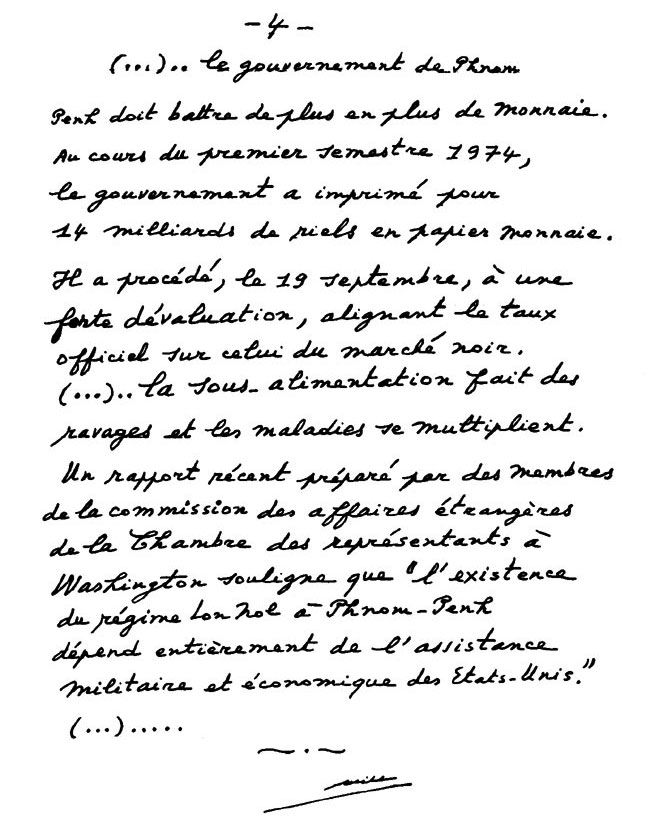 - 4 -
(...).. le gouvernement de Phnom
Penh doit battre de plus en plus de monnaie.
Au cours du premier semestre 1974,
le gouvernement a imprimé pour
14 milliards de riels en papier monnaie.
Il a procédé, le 19 septembre, à une
forte dévaluation, alignant le taux
officiel sur celui du marché noir.
(...).. la sous-alimentation fait des
ravages et les maladies se multiplient.
Un rapport récent préparé par des membres
de la commission des affaires étrangères
de la Chambre des représentants à
Washington souligne que "l'existence
du régime Lon Nol à Phnom-Penh
dépend entièrement de l'assistance
militaire et économique des Etats-Unis."
(...).....